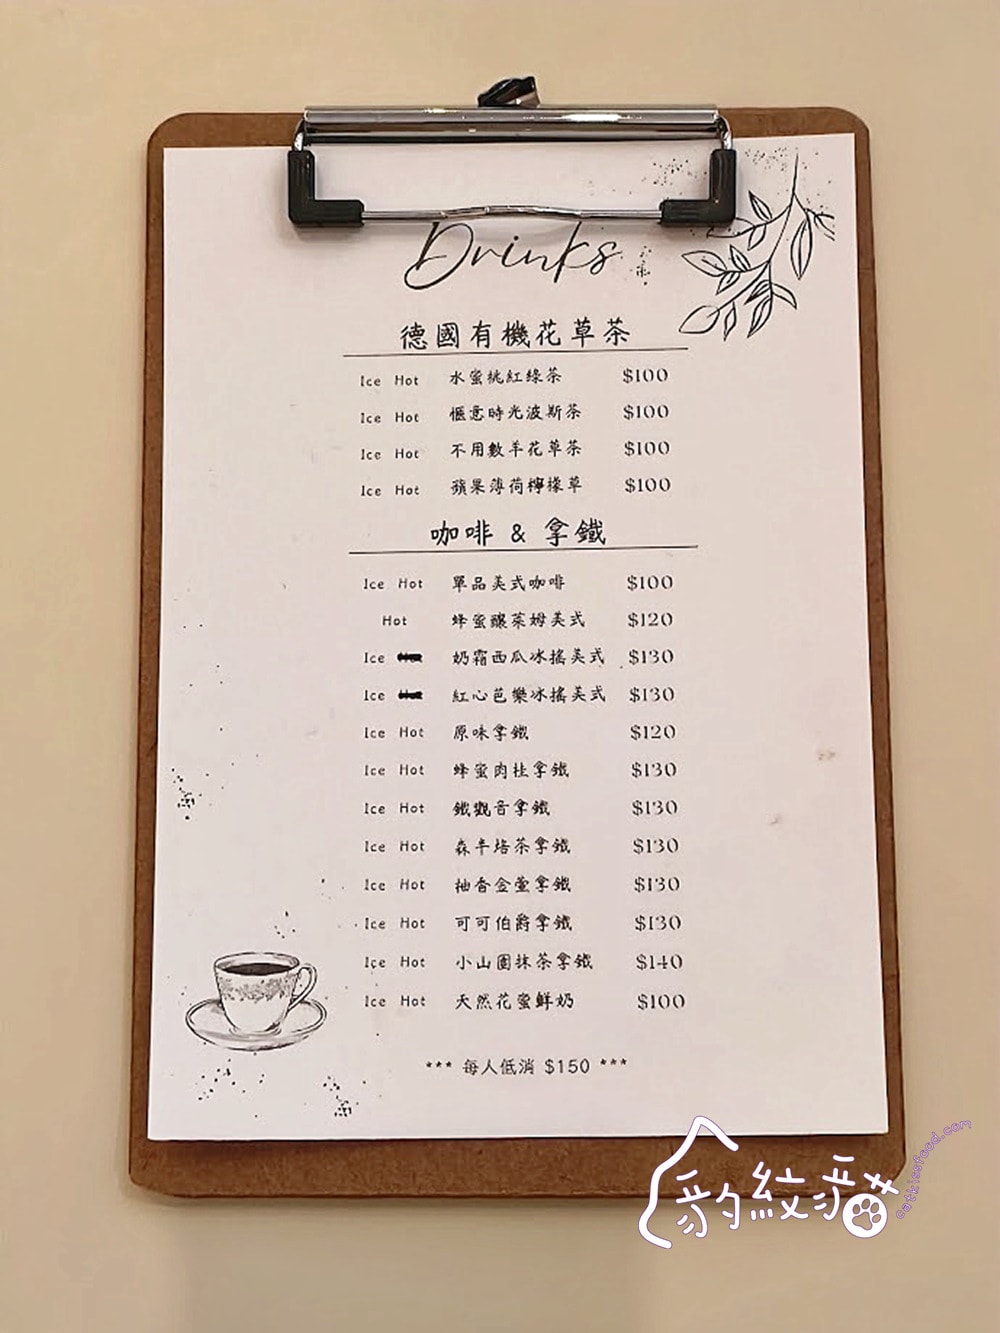 Drinks
德國有機花草茶
Ice Hot 水蜜桃紅綠茶 $100
Ice Hot 愜意時光波斯茶 $100
Ice Hot 不用數羊花草茶 $100
Ice Hot 蘋果薄荷檸檬草 $100
咖啡 & 拿鐵
Ice Hot 單品美式咖啡 $100
Hot 蜂蜜釀萊姆美式 $120
Ice 奶霜西瓜冰搖美式 $130
Ice 紅心芭樂冰搖美式 $130
Ice Hot 原味拿鐵 $120
Ice Hot 蜂蜜肉桂拿鐵 $130
Ice Hot 鐵觀音拿鐵 $130
Ice Hot 森半焙茶拿鐵 $130
Ice Hot 柚香金萱拿鐵 $130
Ice Hot 可可伯爵拿鐵 $130
Ice Hot 小山園抹茶拿鐵 $140
Ice Hot 天然花蜜鮮奶 $100
*** 每人低消 $150 ***
豹紋貓
catkissfood.com